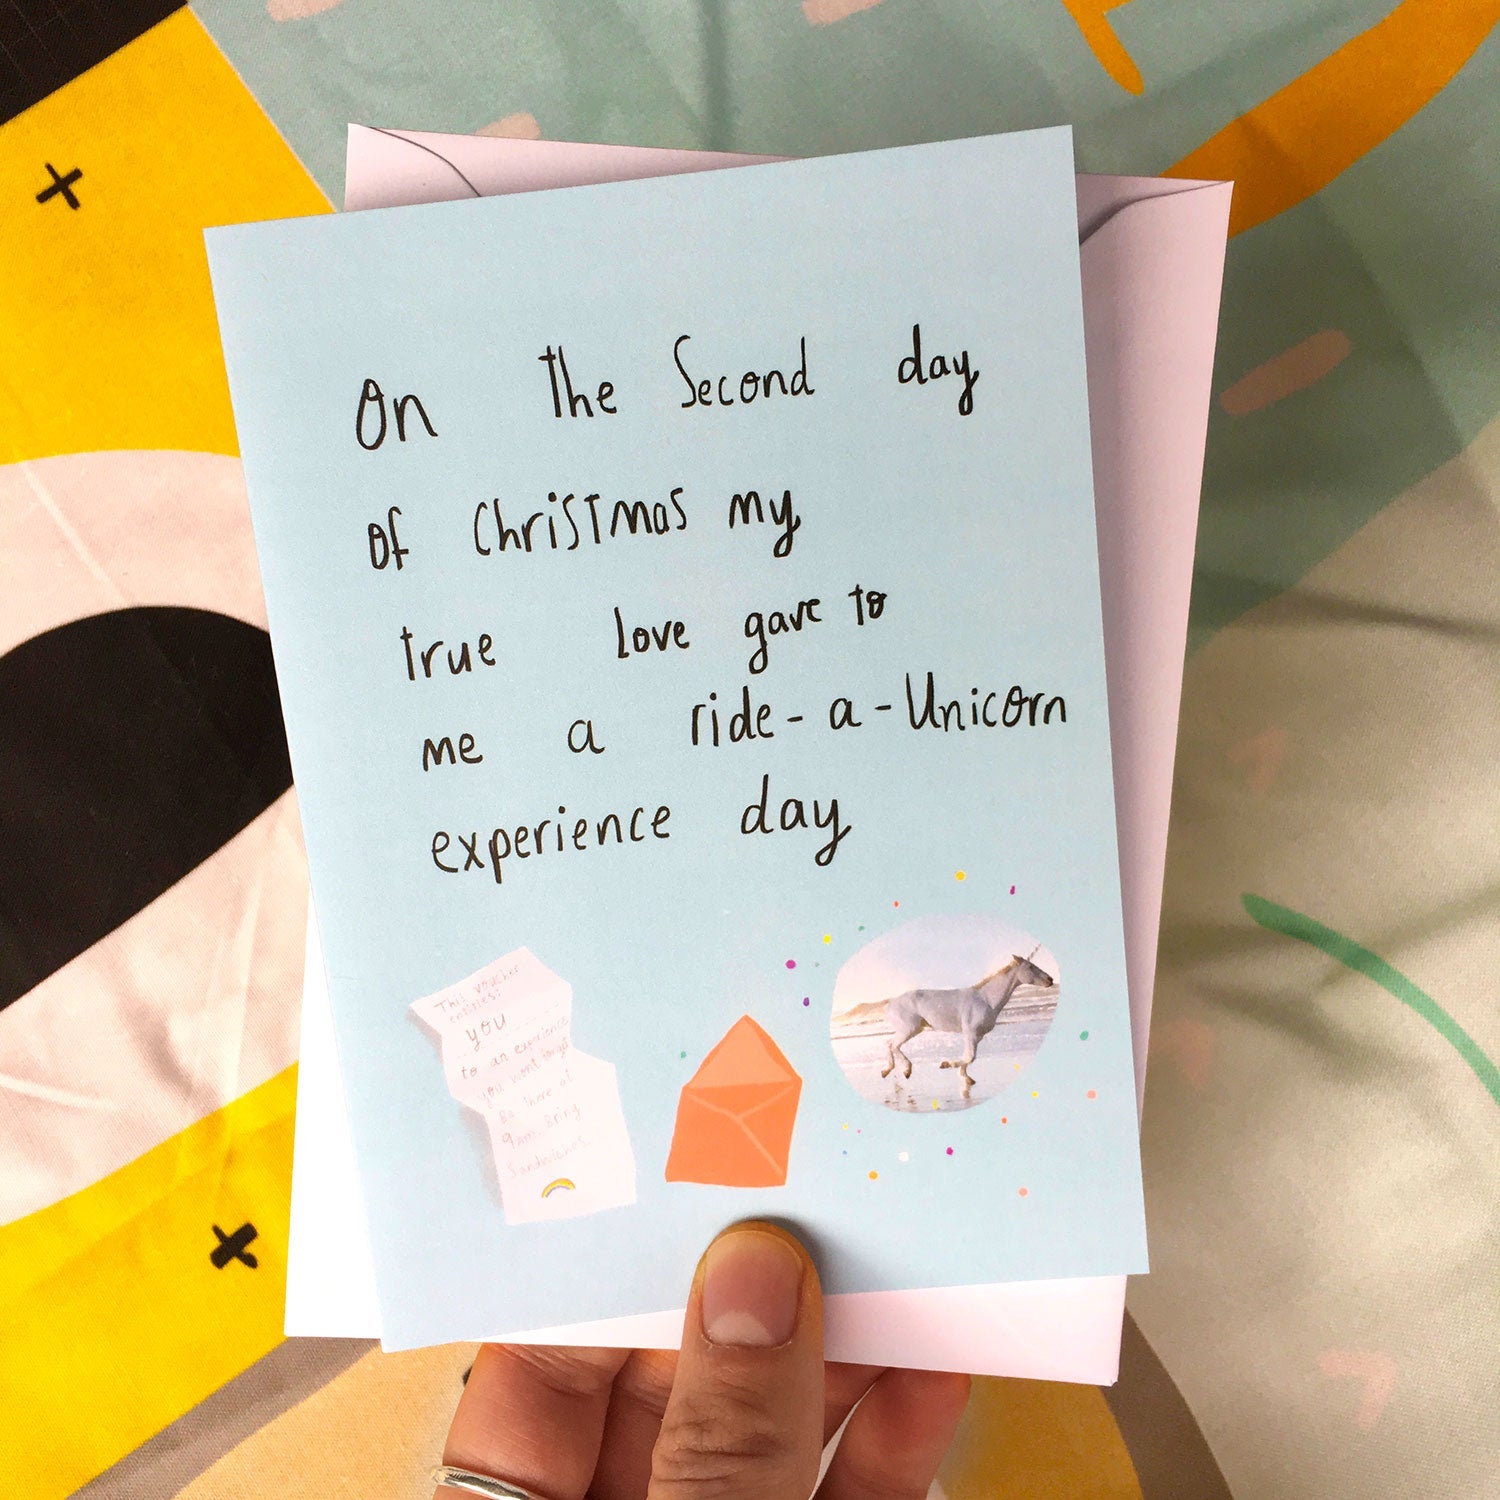 On the Second day
of Christmas my
true love gave to
me a ride-a-Unicorn
experience day
This voucher
entitles:
you
to an experience
you wont forget
Be there at
9am. Bring
Sandwiches.